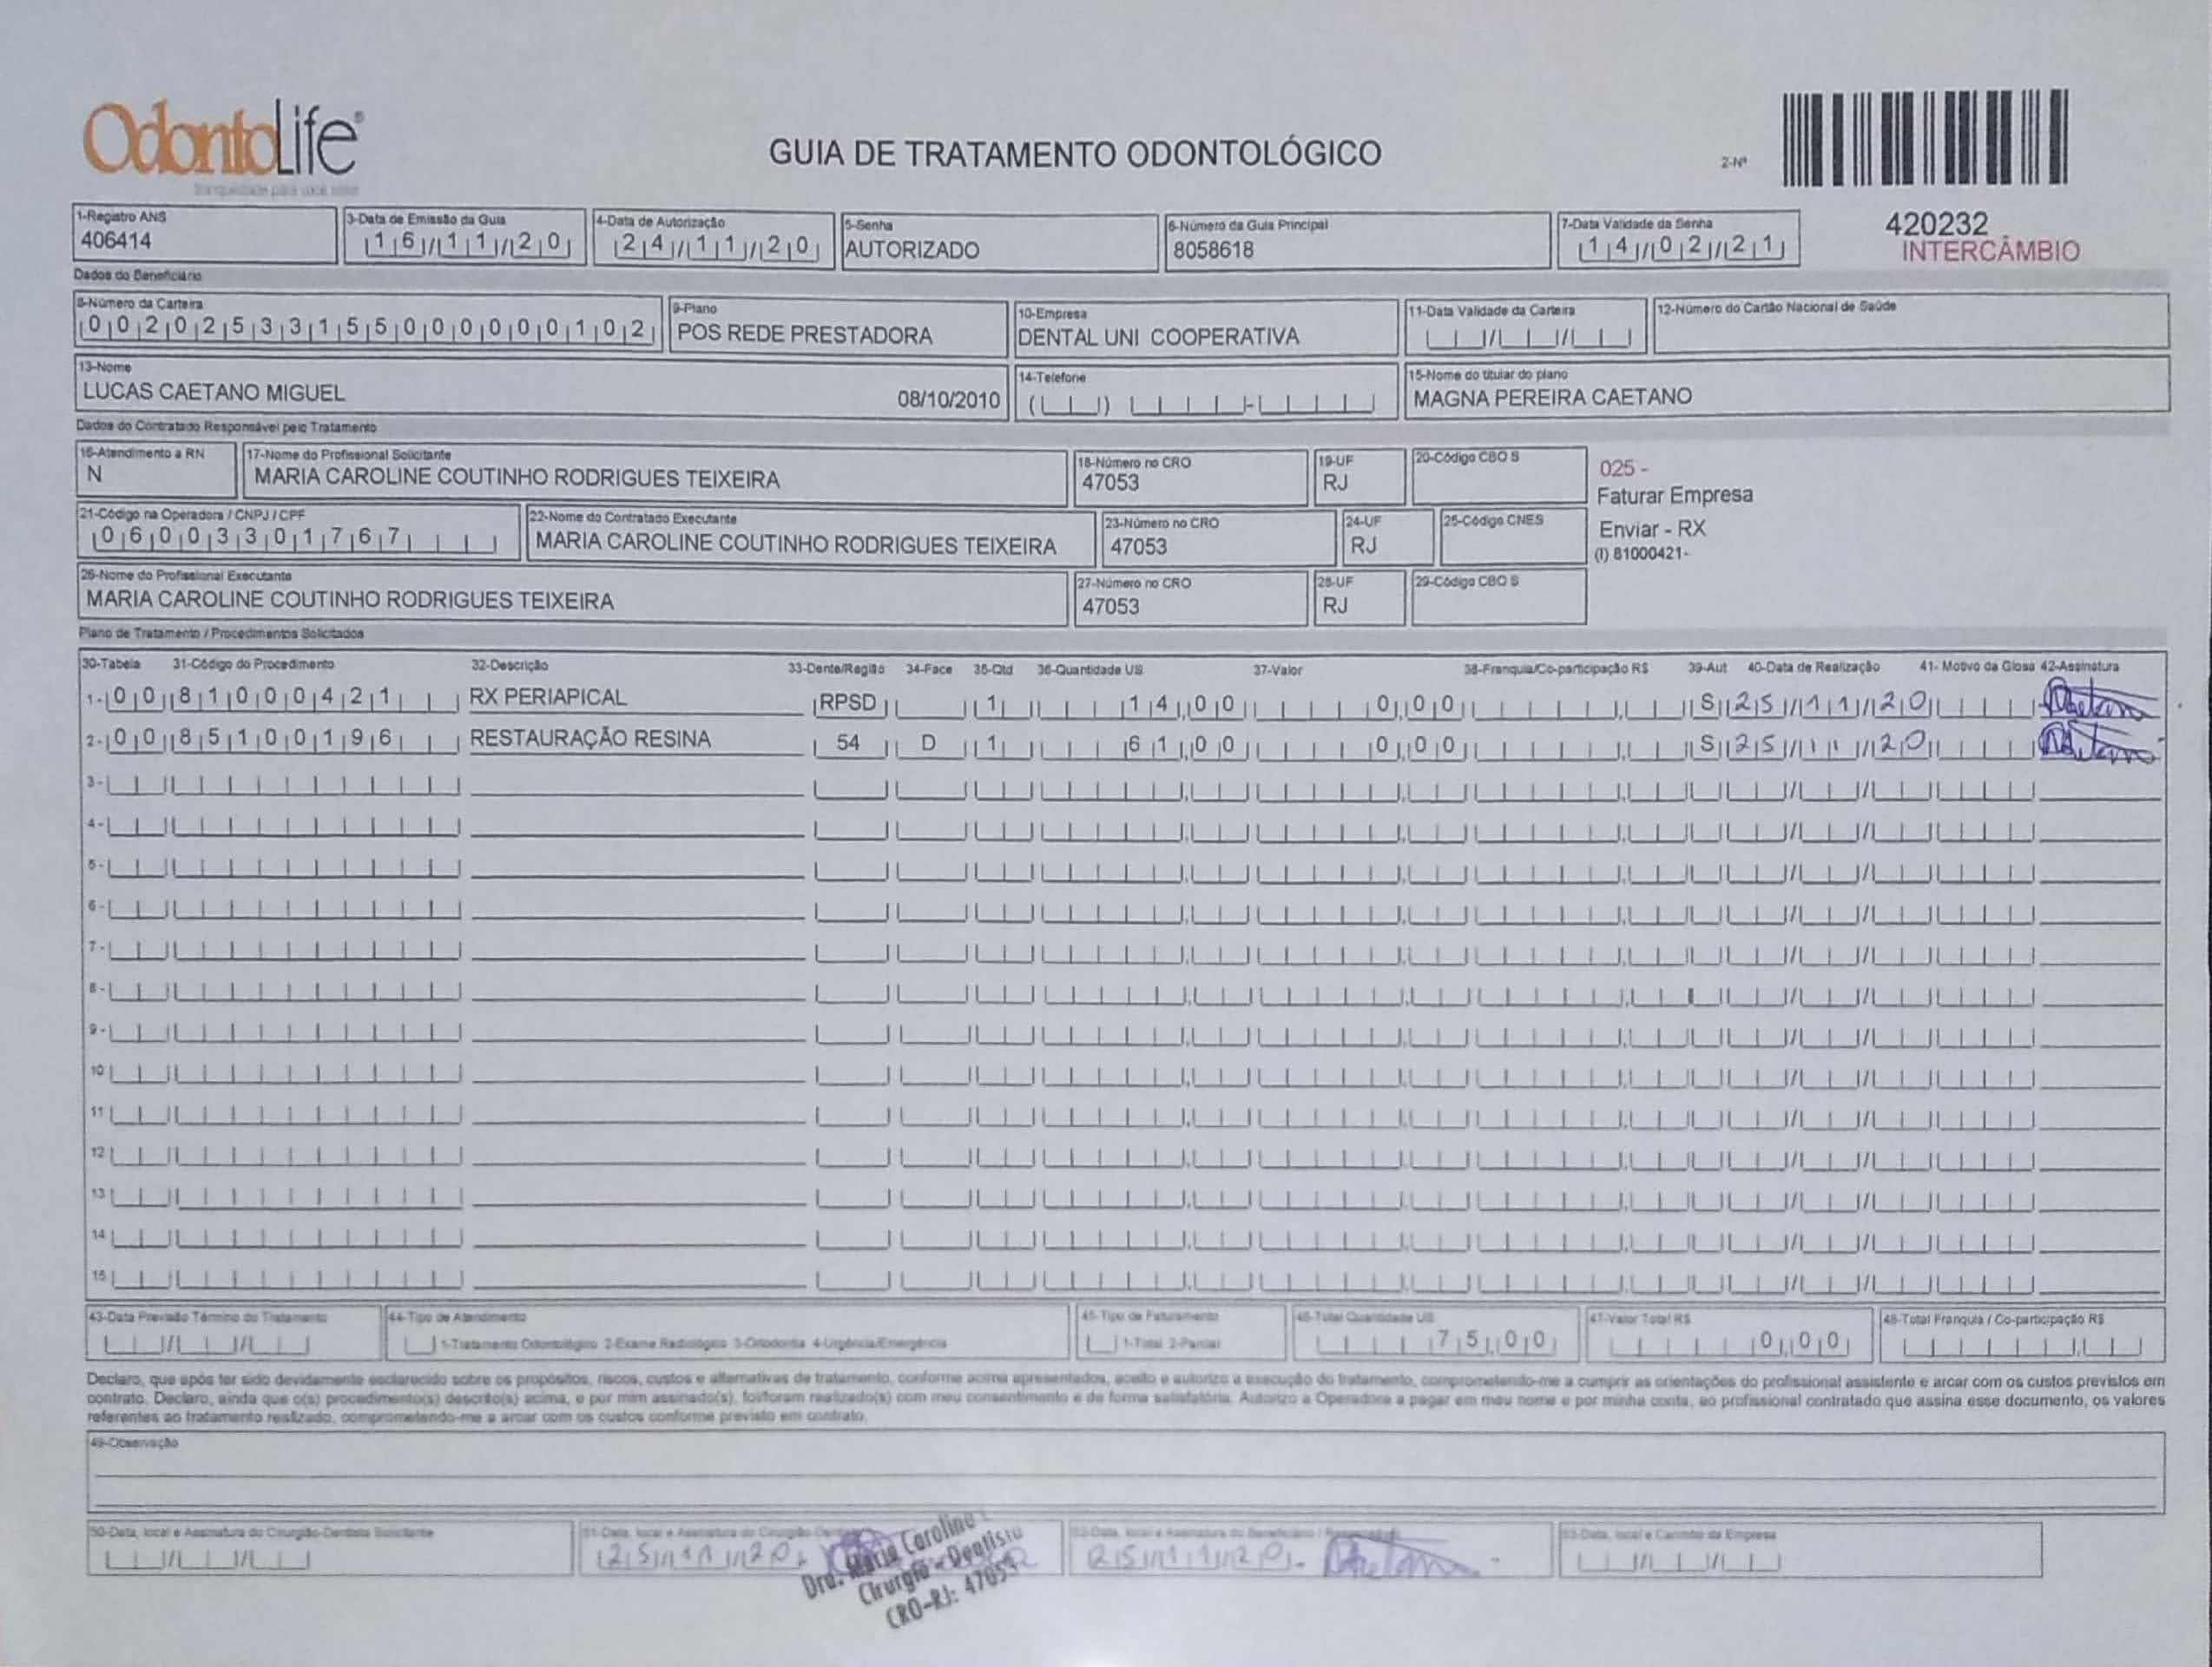 OdontoLife®
GUIA DE TRATAMENTO ODONTOLÓGICO
2-Nº
420232
INTERCÂMBIO
1-Registro ANS
406414
3-Data de Emissão da Guia
16/11/20
4-Data de Autorização
24/11/20
5-Senha
AUTORIZADO
6-Número da Guia Principal
8058618
7-Data Validade da Senha
14/02/21
Dados do Beneficiário
8-Número da Carteira
00202533155000000102
9-Plano
POS REDE PRESTADORA
10-Empresa
DENTAL UNI COOPERATIVA
11-Data Validade da Carteira
12-Número do Cartão Nacional de Saúde
13-Nome
LUCAS CAETANO MIGUEL 08/10/2010
14-Telefone
15-Nome do titular do plano
MAGNA PEREIRA CAETANO
Dados do Contratado Responsável pelo Tratamento
16-Atendimento a RN
N
17-Nome do Profissional Solicitante
MARIA CAROLINE COUTINHO RODRIGUES TEIXEIRA
18-Número no CRO
47053
19-UF
RJ
20-Código CBO S
025 -
Faturar Empresa
Enviar - RX
(I) 81000421-
21-Código na Operadora / CNPJ / CPF
06003301767
22-Nome do Contratado Executante
MARIA CAROLINE COUTINHO RODRIGUES TEIXEIRA
23-Número no CRO
47053
24-UF
RJ
25-Código CNES
26-Nome do Profissional Executante
MARIA CAROLINE COUTINHO RODRIGUES TEIXEIRA
27-Número no CRO
47053
28-UF
RJ
29-Código CBO S
Plano de Tratamento / Procedimentos Solicitados
30-Tabela 31-Código do Procedimento 32-Descrição 33-Dente/Região 34-Face 35-Qtd 36-Quantidade US 37-Valor 38-Franquia/Co-participação R$ 39-Aut 40-Data de Realização 41- Motivo da Glosa 42-Assinatura
1- 00 81000421 RX PERIAPICAL RPSD 1 14,00 0,00 S 25/11/20
2- 00 85100196 RESTAURAÇÃO RESINA 54 D 1 61,00 0,00 S 25/11/20
3-
4-
5-
6-
7-
8-
9-
10
11
12
13
14
15
43-Data Previsão Término do Tratamento
44-Tipo de Atendimento
1-Tratamento Odontológico 2-Exame Radiológico 3-Ortodontia 4-Urgência/Emergência
45-Tipo de Faturamento
1-Total 2-Parcial
46-Total Quantidade US
75,00
47-Valor Total R$
0,00
48-Total Franquia / Co-participação R$
Declaro, que após ter sido devidamente esclarecido sobre os propósitos, riscos, custos e alternativas de tratamento, conforme acima apresentados, aceito e autorizo a execução do tratamento, comprometendo-me a cumprir as orientações do profissional assistente e arcar com os custos previstos em
contrato. Declaro, ainda que o(s) procedimento(s) descrito(s) acima, e por mim assinado(s), foi/foram realizado(s) com meu consentimento e de forma satisfatória. Autorizo a Operadora a pagar em meu nome e por minha conta, ao profissional contratado que assina esse documento, os valores
referentes ao tratamento realizado, comprometendo-me a arcar com os custos conforme previsto em contrato.
49-Observação
50-Data, local e Assinatura do Cirurgião-Dentista Solicitante
51-Data, local e Assinatura do Cirurgião-
25/11/20
Dra. Maria Caroline
Cirurgiã - Dentista
CRO-RJ: 47053
52-Data, local e Assinatura do Beneficiário /
25/11/20
53-Data, local e Carimbo da Empresa